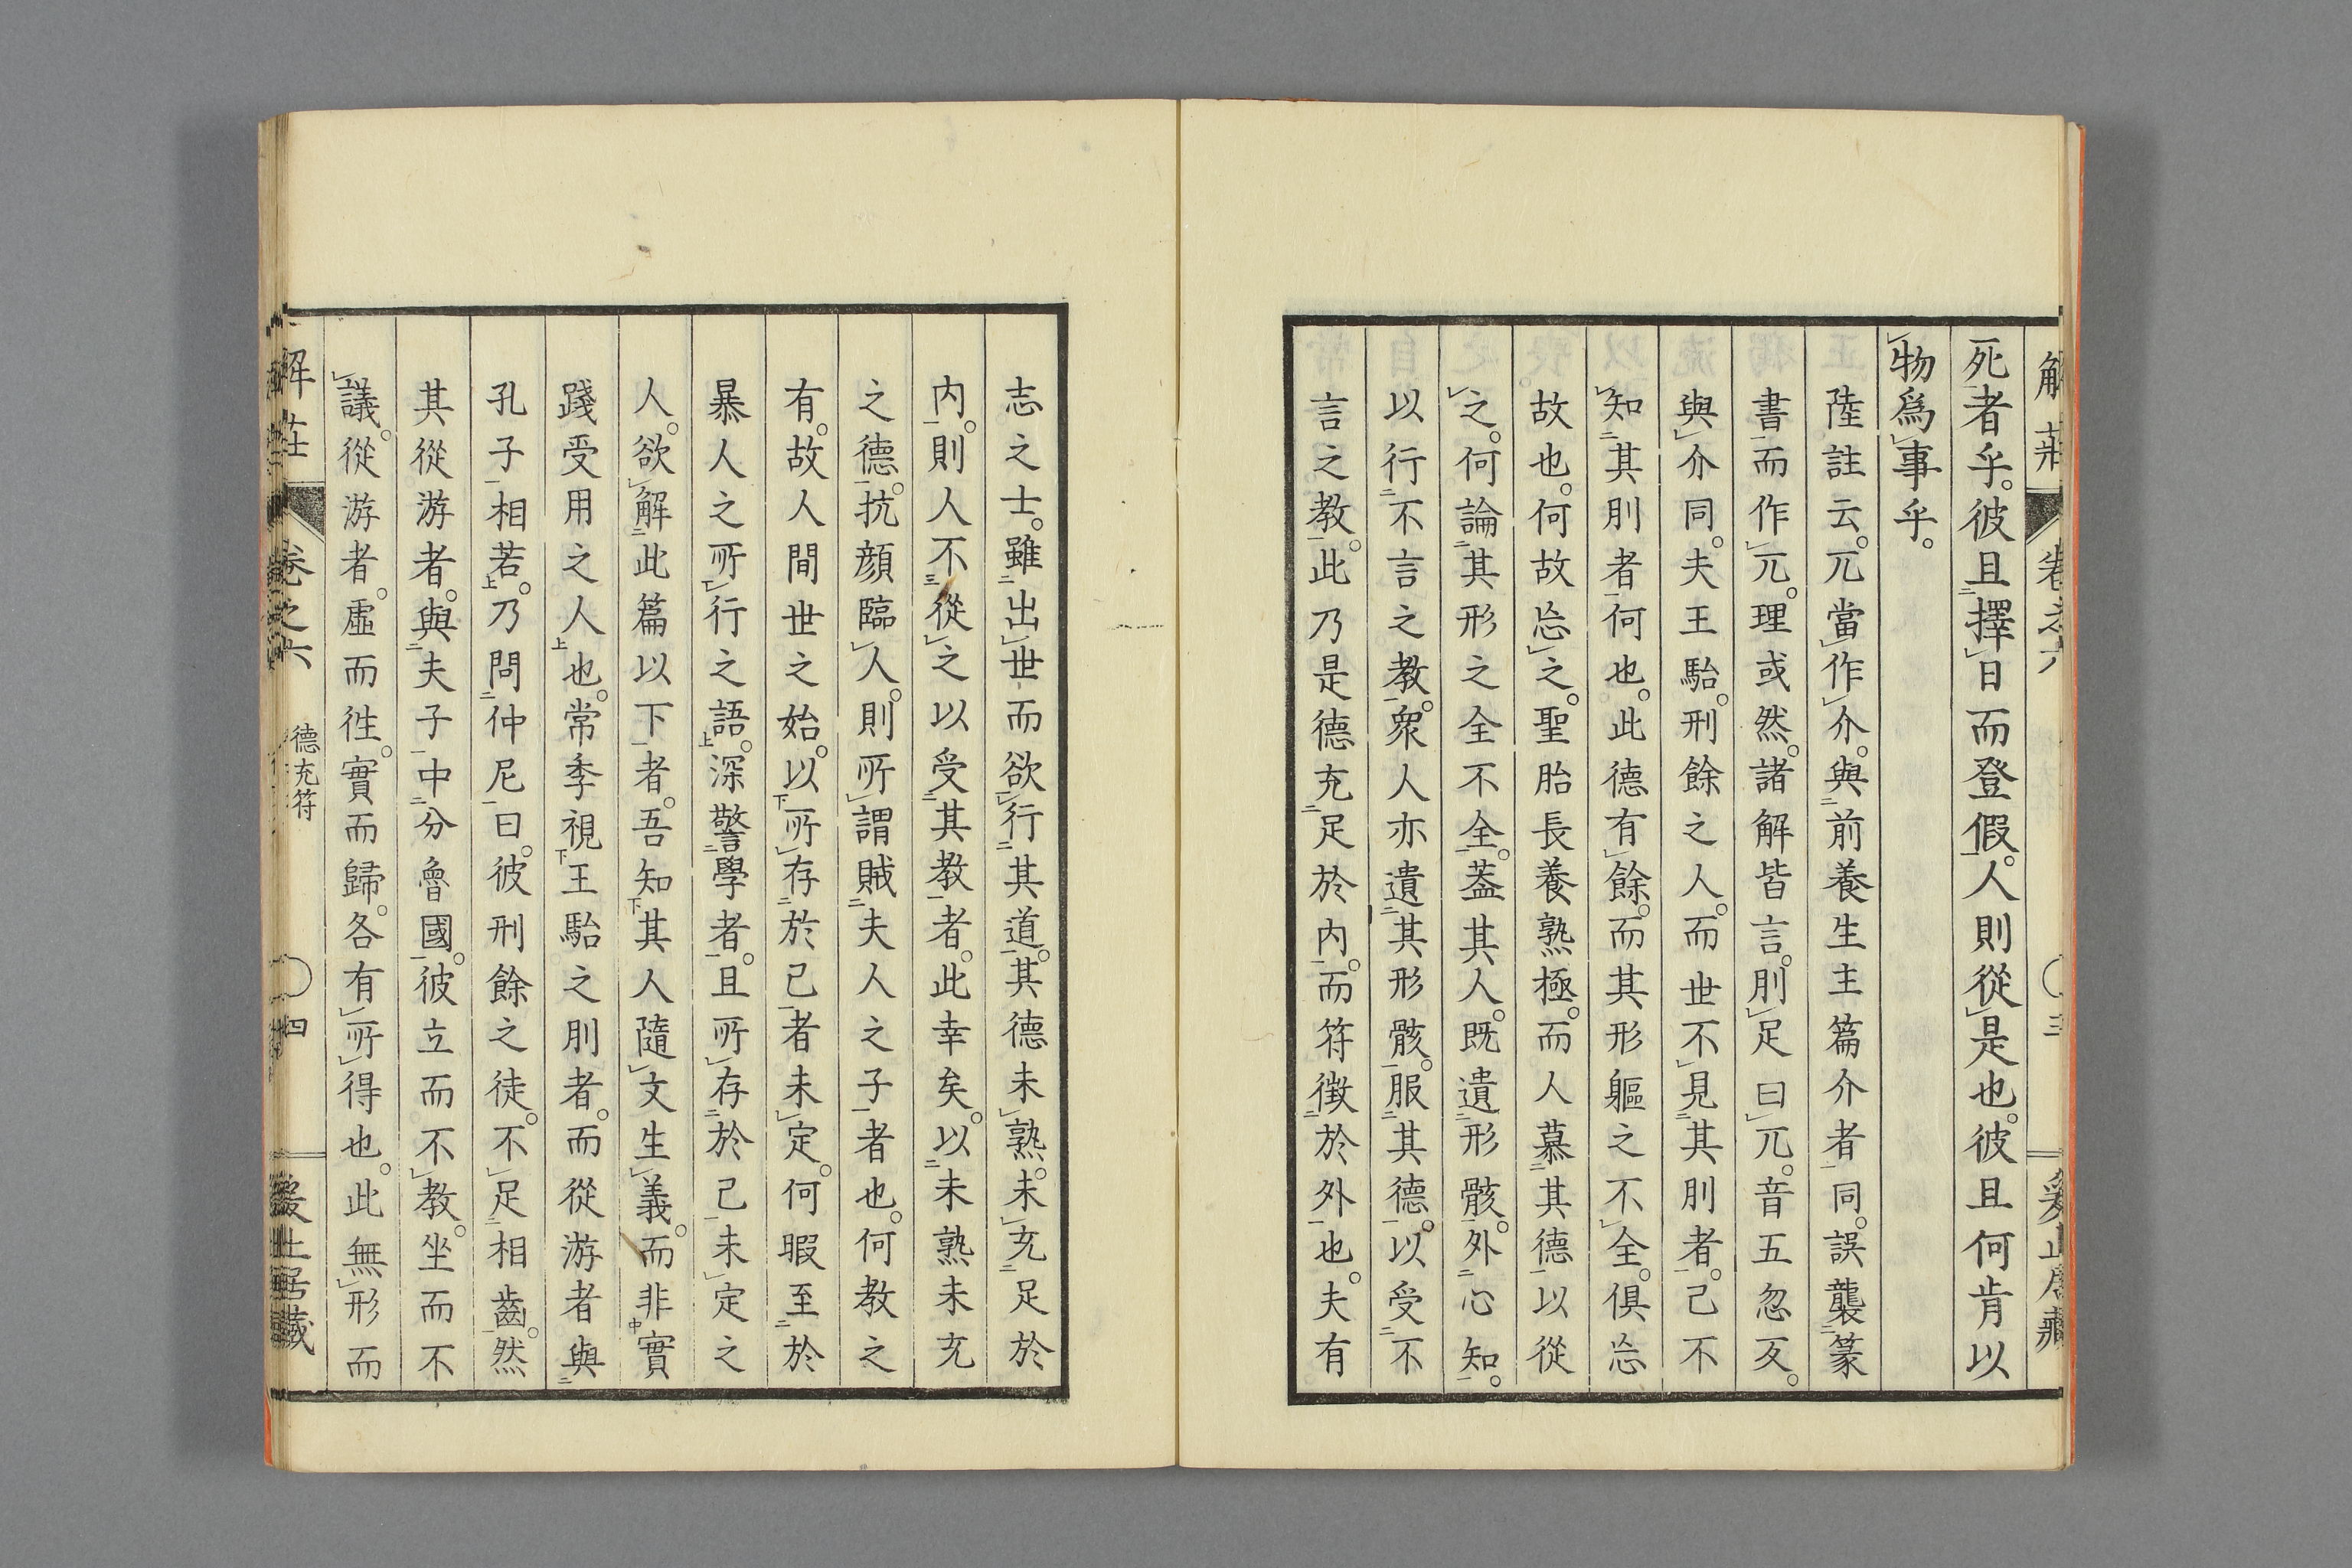 死者乎。彼且擇日而登假。人則從是也。彼且何肯以
物爲事乎。
陸註云。兀當作介。與前養生主篇介者同。誤襲篆
書而作兀。理或然。諸解皆言。刖足曰兀。音五忽反。
與介同。夫王駘。刑餘之人。而世不見其刖者。己不
知其刖者何也。此德有餘。而其形軀之不全。俱忘
故也。何故忘之。聖胎長養熟極。而人慕其德以從
之。何論其形之全不全。蓋其人。既遺形骸。外心知。
以行不言之教。衆人亦遺其形骸。服其德。以受不
言之教。此乃是德充足於内。而符徴於外也。夫有
志之士。雖出世而欲行其道。其德未熟。未充足於
内。則人不從之以受其教者。此幸矣。以未熟未充
之德。抗顔臨人。則所謂賊夫人之子者也。何教之
有。故人間世之始。以所存於己者未定。何暇至於
暴人之所行之語。深警學者。且所存於己未定之
人。欲解此篇以下者。吾知其人隨文生義。而非實
踐受用之人也。常季視王駘之刖者。而從游者與
孔子相若。乃問仲尼曰。彼刑餘之徒。不足相齒。然
其從游者。與夫子中分魯國。彼立而不教。坐而不
議。從游者。虛而徃。實而歸。各有所得也。此無形而
解莊
卷之六
德充符
四